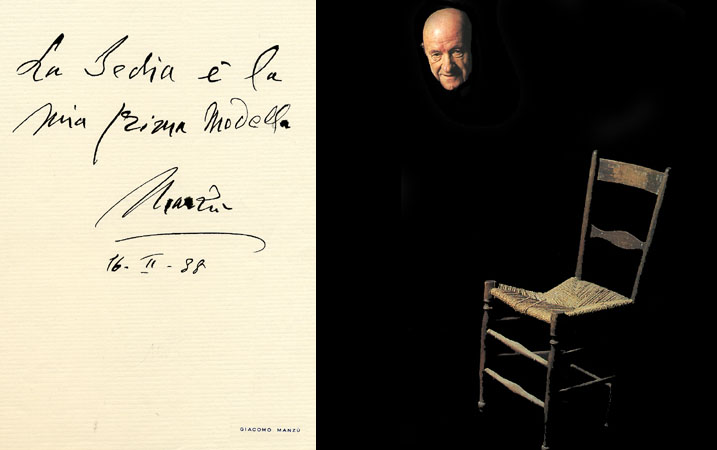 La Sedia è la
mia prima Modella
Manzù
16-II-88
GIACOMO MANZÙ